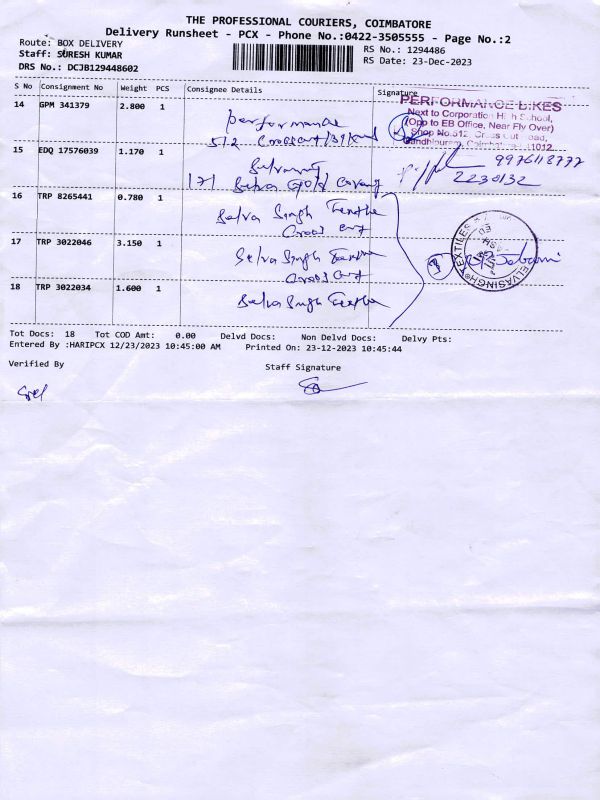 THE PROFESSIONAL COURIERS, COIMBATORE
Delivery Runsheet - PCX - Phone No.:0422-3505555 - Page No.:2
Route: BOX DELIVERY
RS No.: 1294486
Staff: SURESH KUMAR
RS Date: 23-Dec-2023
DRS No.: DCJB129448602
S No Consignment No Weight PCS Consignee Details Signature
14 GPM 341379 2.800 1
PERFORMANCE BIKES
Next to Corporation High School,
(Opp to EB Office, Near Fly Over)
Shop No.512, Cross Cut Road,
performance
512 Crosscut
15 EDQ 17576039 1.170 1
9976118777
171 Selva Gold Covering
2230132
16 TRP 8265441 0.780 1
Selva Singh
Cross cut
17 TRP 3022046 3.150 1
Selva Singh
Cross cut
18 TRP 3022034 1.600 1
Selva Singh
ELVASINGH TEXTILES
Tot Docs: 18 Tot COD Amt: 0.00 Delvd Docs: Non Delvd Docs: Delvy Pts:
Entered By :HARIPCX 12/23/2023 10:45:00 AM Printed On: 23-12-2023 10:45:44
Verified By
Staff Signature